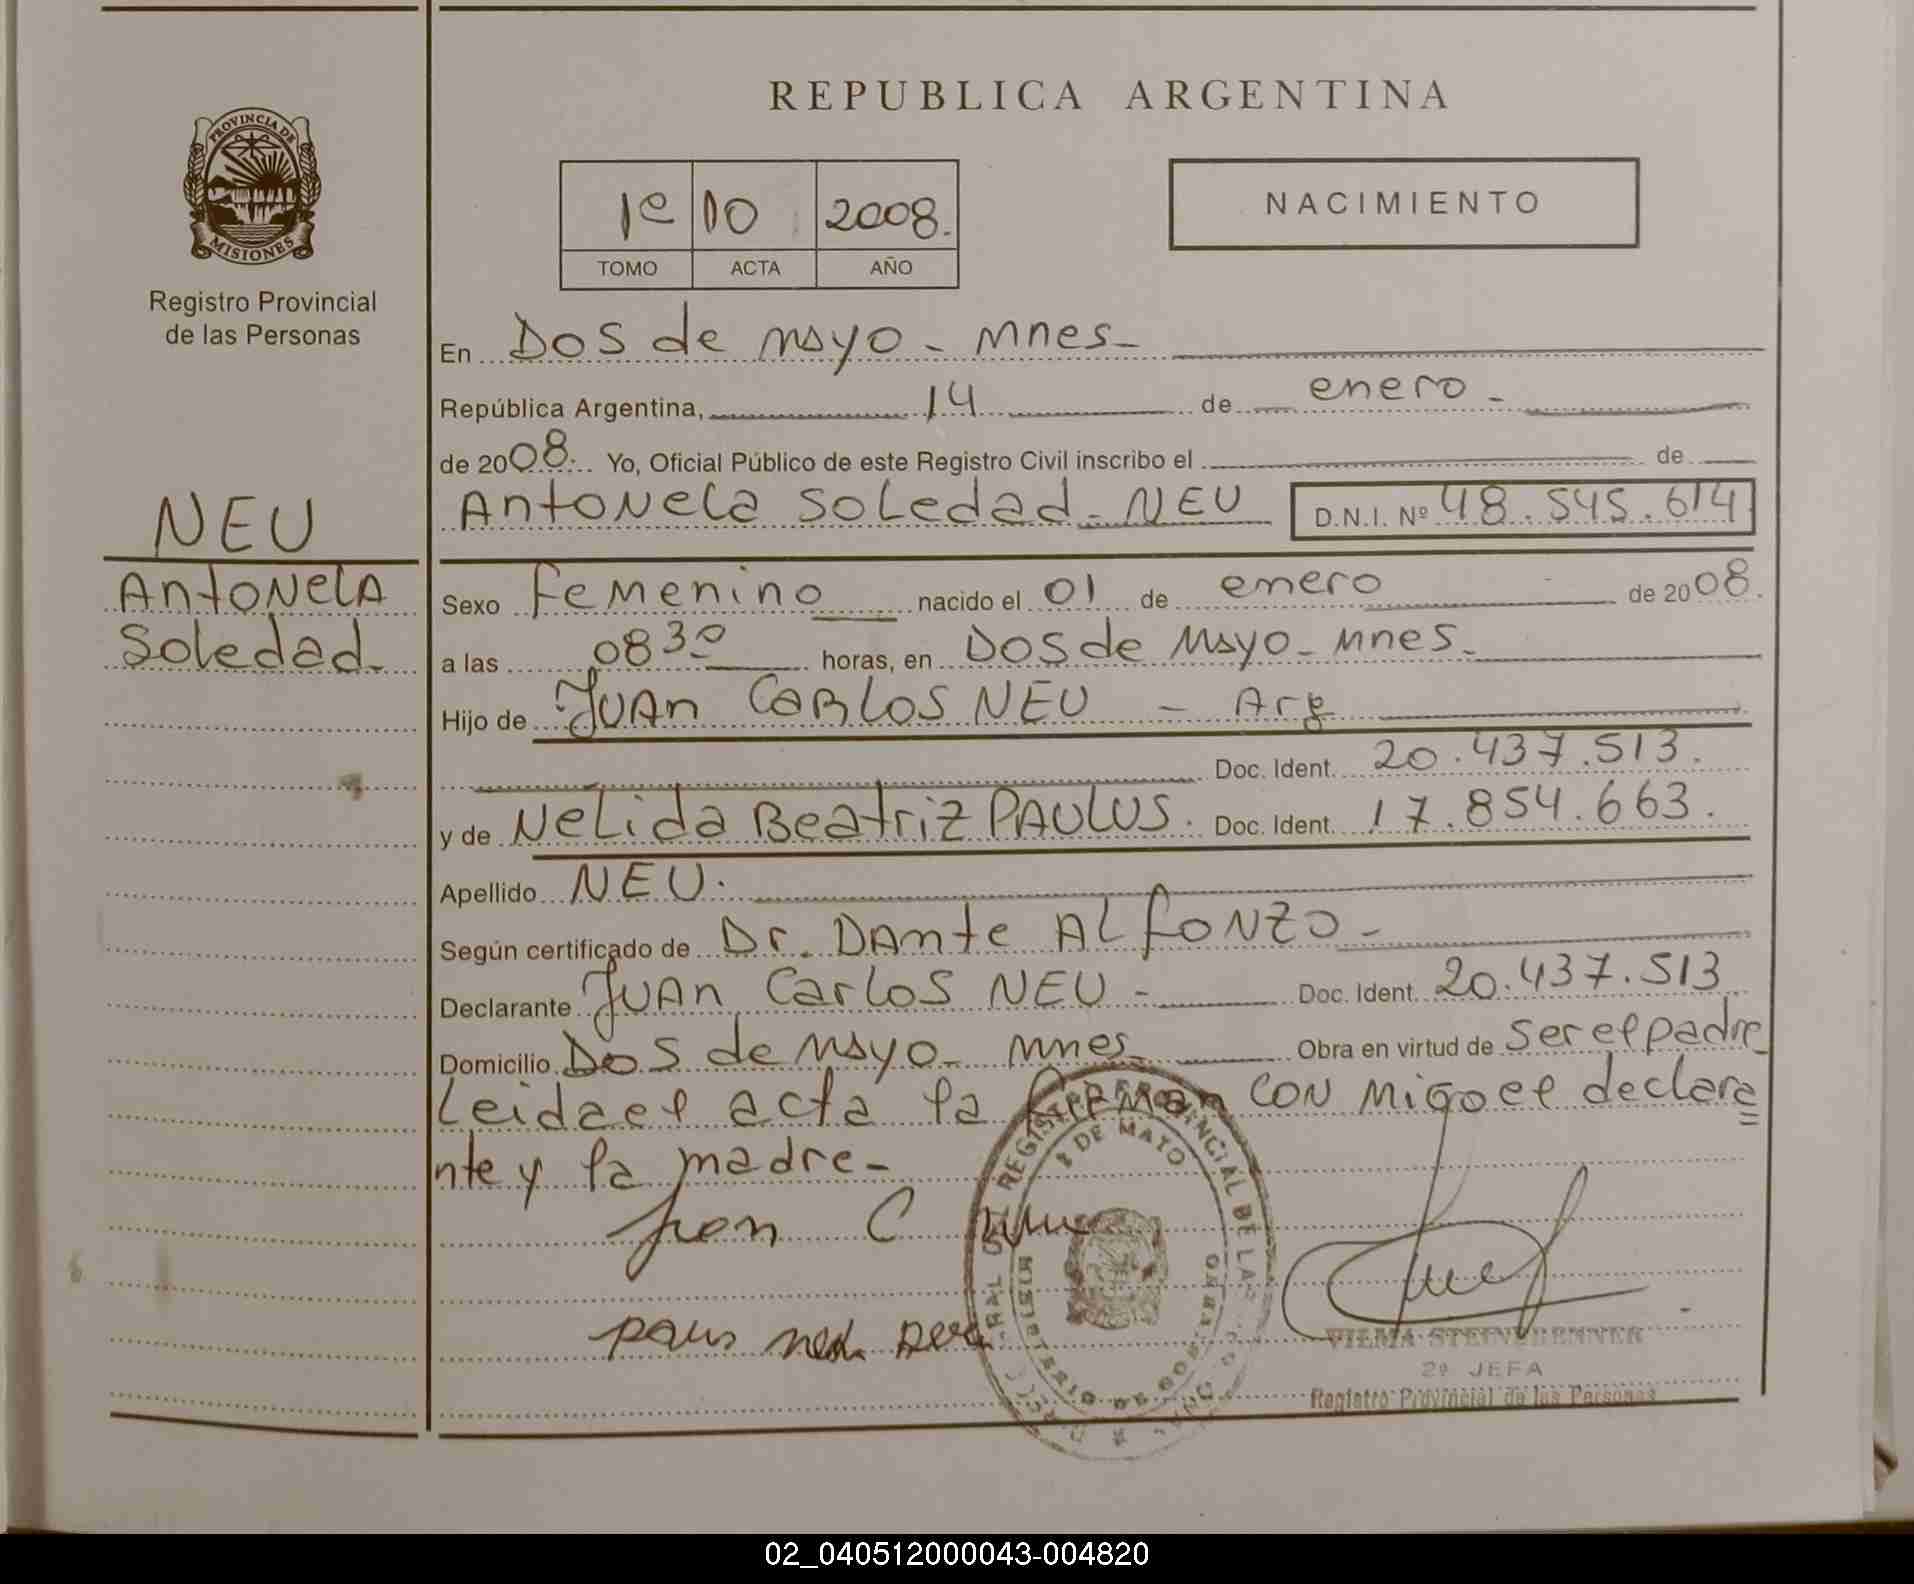 REPUBLICA ARGENTINA
PROVINCIA DE
MISIONES
Registro Provincial
de las Personas
1e 10 2008.
TOMO ACTA AÑO
NACIMIENTO
En Dos de mayo - mnes-
República Argentina, 14 de enero -
de 2008. Yo, Oficial Público de este Registro Civil inscribo el de
Antonela Soledad - NEU D.N.I. Nº 48.545.614
NEU
Antonela
Soledad-
Sexo Femenino nacido el 01 de enero de 2008.
a las 0830 horas, en Dos de Mayo - mnes.
Hijo de Juan Carlos NEU - Arg
Doc. Ident. 20.437.513.
y de Nelida Beatriz PAULUS. Doc. Ident. 17.854.663.
Apellido NEU.
Según certificado de Dr. Dante Alfonzo -
Declarante Juan Carlos NEU - Doc. Ident. 20.437.513
Domicilio Dos de Mayo - mnes Obra en virtud de ser el padre
Leida el acta la firman con migo el declara
nte y la madre -
2 DE MAYO
VILMA STEINBRENNER
2º JEFA
Registro Provincial de las Personas
02_040512000043-004820